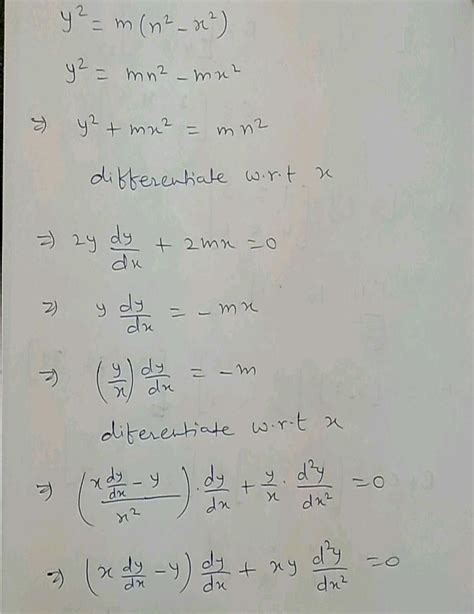 y² = m (n² - x²)
y² = mn² - mx²
⇒ y² + mx² = mn²
differentiate w.r.t x
⇒ 2y dy/dx + 2mx = 0
⇒ y dy/dx = - mx
⇒ (y/x) dy/dx = -m
diferentiate w.r.t x
⇒ ((x dy/dx - y)/x²) . dy/dx + y/x . d²y/dx² = 0
⇒ (x dy/dx - y) dy/dx + xy d²y/dx² = 0